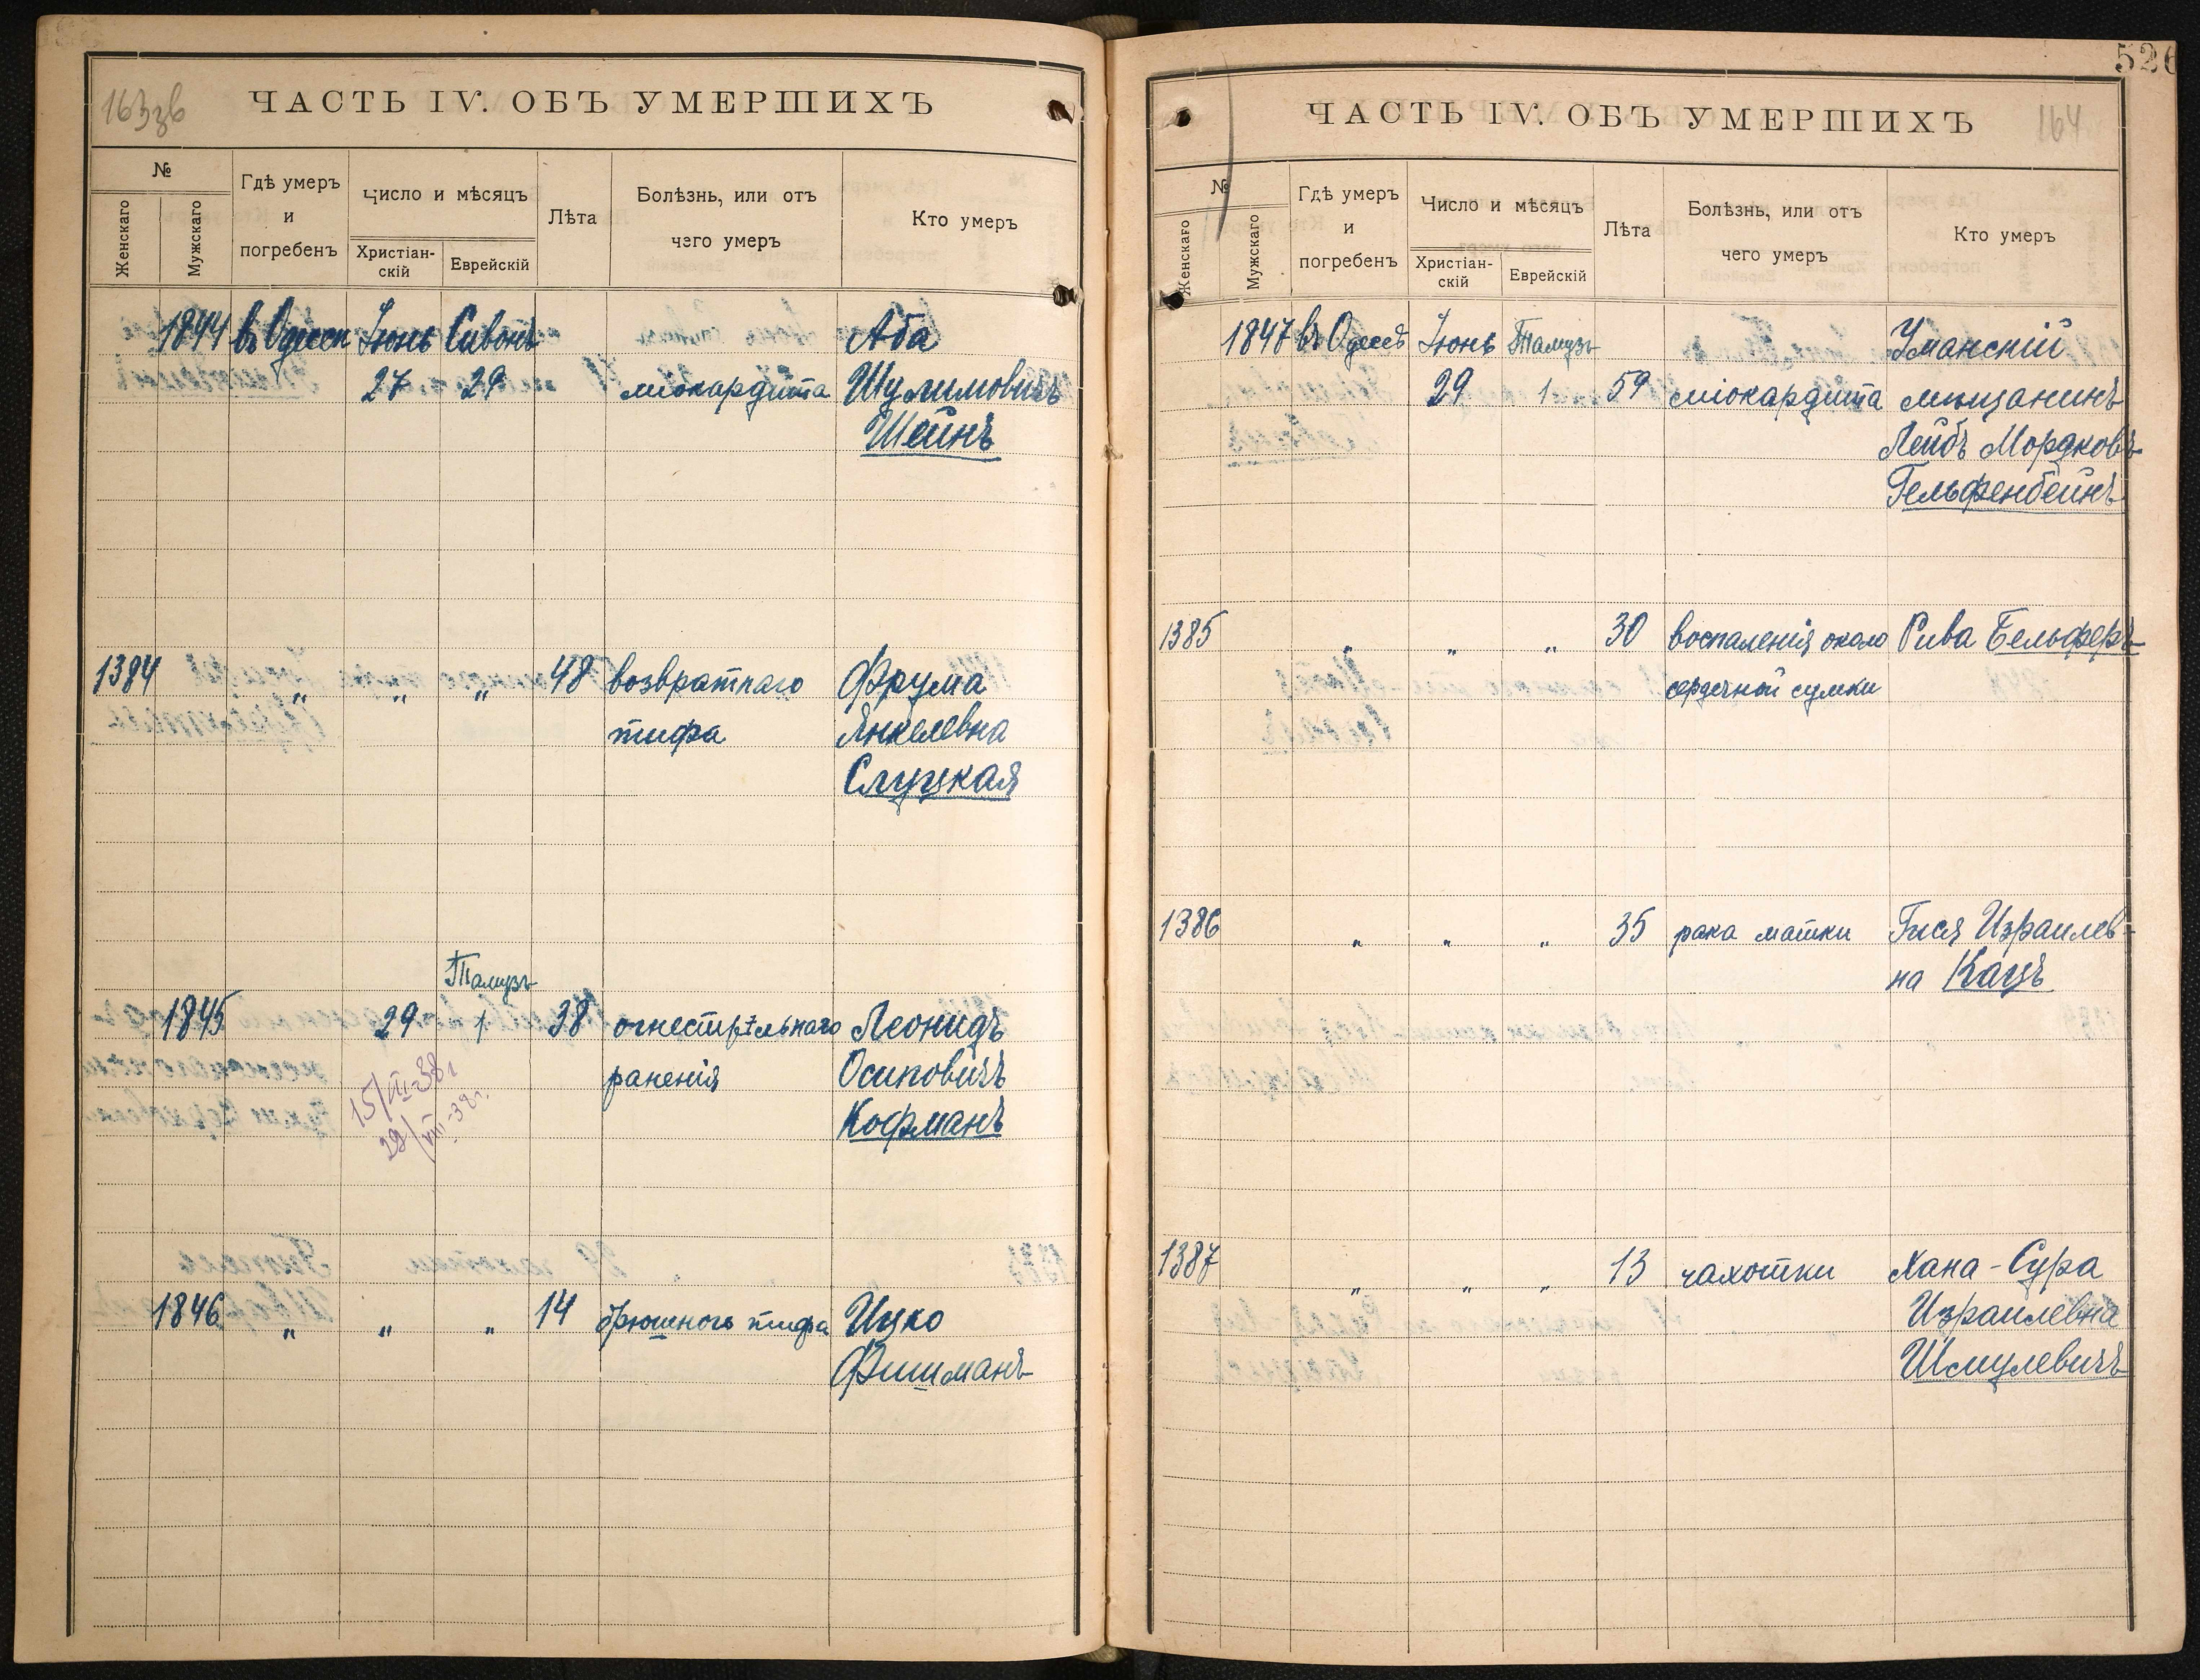 163 зв
ЧАСТЬ IV. ОБЪ УМЕРШИХЪ
№
Женскаго
Мужскаго
Гдѣ умеръ
и
погребенъ
Число и мѣсяцъ
Христіан-
скій
Еврейскій
Лѣта
Болѣзнь, или отъ
чего умеръ
Кто умеръ
1844 въ Одессѣ Іюнь Сивонъ Аба
27 29 міокардита Шулимовичъ
Шейнъ
1384 " " " 48 возвратнаго Фрума
тифа Янкелевна
Слуцкая
Тамузъ
1845 29 1 38 огнестрѣльнаго Леонидъ
раненія Осиповичъ
15/III-38г Кофманъ
29/VIII-38г.
1846 " " " 14 брюшного тифа Ицко
Фишманъ
526
ЧАСТЬ IV. ОБЪ УМЕРШИХЪ
164
№
Женскаго
Мужскаго
Гдѣ умеръ
и
погребенъ
Число и мѣсяцъ
Христіан-
скій
Еврейскій
Лѣта
Болѣзнь, или отъ
чего умеръ
Кто умеръ
1847 въ Одессѣ Іюнь Тамузъ Уманскій
29 1 59 міокардита мѣщанинъ
Лейбъ Мордковъ
Гельфенбейнъ
1385 " " " 30 воспаленія около Рива Бельферъ
сердечной сумки
1386 " " " 35 рака матки Гися Израилев-
на Кацъ
1387 " " " 13 чахотки Хана-Сура
Израилевна
Шмулевичъ